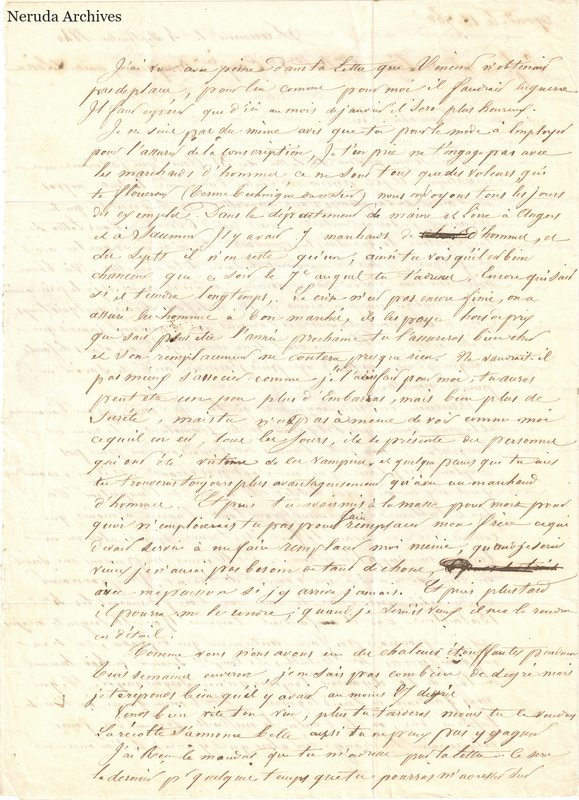 Neruda Archives
J'ai vu avec peine dans ta lettre que Vincent n'obtenait
pas de place, pour lui comme pour moi il faudrait la guerre
Il faut espérer que d'ici au mois de janvier il sera plus heureux.
Je ne suis pas du même avis que toi pour le mode à employer
pour l'assurer de la conscription. Je t'en prie ne t'engage pas avec
les marchands d'homme ce ne sont tous que des voleurs qui
te floueront (terme technique du métier) nous en voyons tous les jours
des exemples. Dans le département de maine et Loire à Angers
et à Saumur Il y avait 7 marchands de d'homme, et
des sept il n'en reste qu'un, ainsi tu vois qu'il est bien
chanceux que ce soit le 7e auquel tu t'adresse. Encore qui sait
si il tiendra longtemps. La crise n'est pas encore finie, on a
assuré les homme à bon marché, ils les paye hors de prix
qui sait plus l'année prochaine tu l'assureras bien cher
et son remplacement ne coutera presque rien. Ne vaudrait-il
pas mieux s'associer comme je l'ai fait pour moi, tu auras
peut être un peu plus d'embarras, mais bien plus de
sureté, mais tu n'es pas à même de voir comme moi
ce qu'il en est, tous les jours, il se présente des personnes
qui ont été victime de ces vampires. et quelque peu que tu aies
tu trouveras toujours plus avantageusement qu'avec un marchand
d'homme. Et puis tu avais mis à la masse pour moi pour
quoi n'emploierais tu pas pour faire remplacer mon frère ce qui
devait servir à me faire remplacer moi même, quand je serai
vieux je n'aurai pas besoin de tant de chose,
avec ma pension si j'y arrive jamais. Et puis plus tard
il pourra me le rendre, quand je serais vieux il me le rendra
en détail.
Comme vous nous avons eu des chaleurs étouffantes pendant
trois semaines environ, je ne sais pas combien de degré mais
je te réponds bien qu'il y avait au moins degré
Vends bien vite ton vin, plus tu tarderas moins tu le vendras
La récolte s'annonce belle aussi tu ne peux pas y gagner
J'ai reçu le mandat que tu m'adresse par ta lettre. Ce sera
le dernier pr quelque temps que tu pourras m'adresser